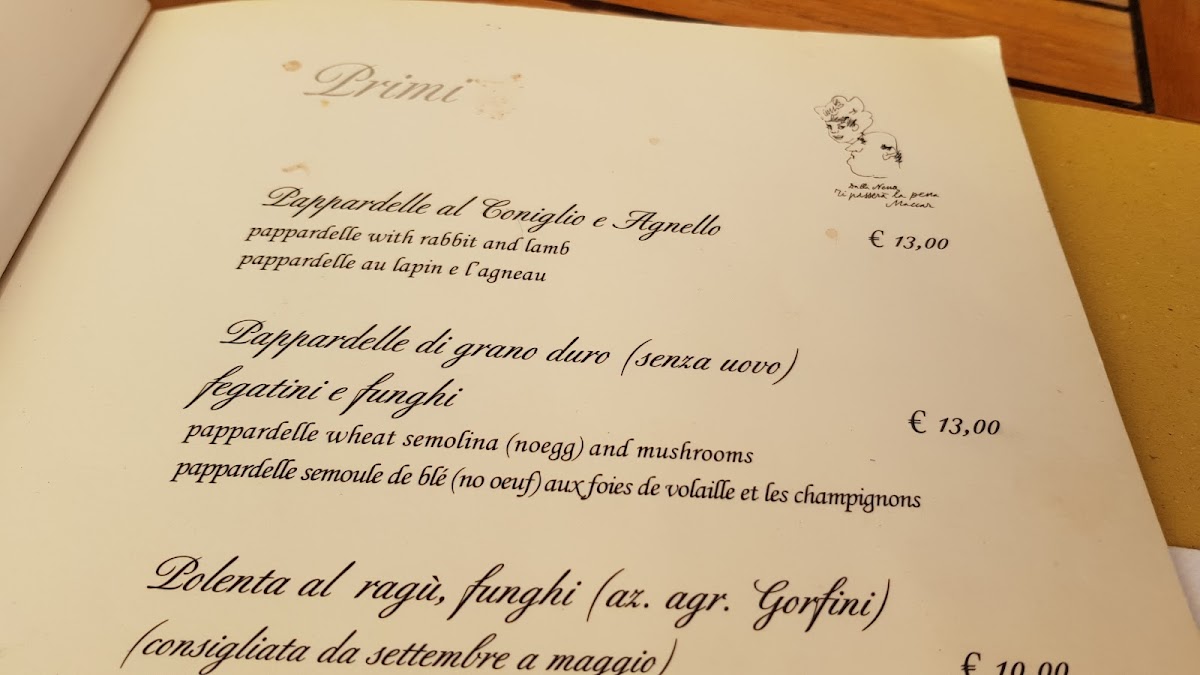 Primi
Dalla Nena
Ti passerà la pena
Maccari
Pappardelle al Coniglio e Agnello
pappardelle with rabbit and lamb
pappardelle au lapin e l'agneau
€ 13,00
Pappardelle di grano duro (senza uovo)
fegatini e funghi
pappardelle wheat semolina (noegg) and mushrooms
pappardelle semoule de blé (no oeuf) aux foies de volaille et les champignons
€ 13,00
Polenta al ragù, funghi (az. agr. Gorfini)
(consigliata da settembre a maggio)
€ 10,00